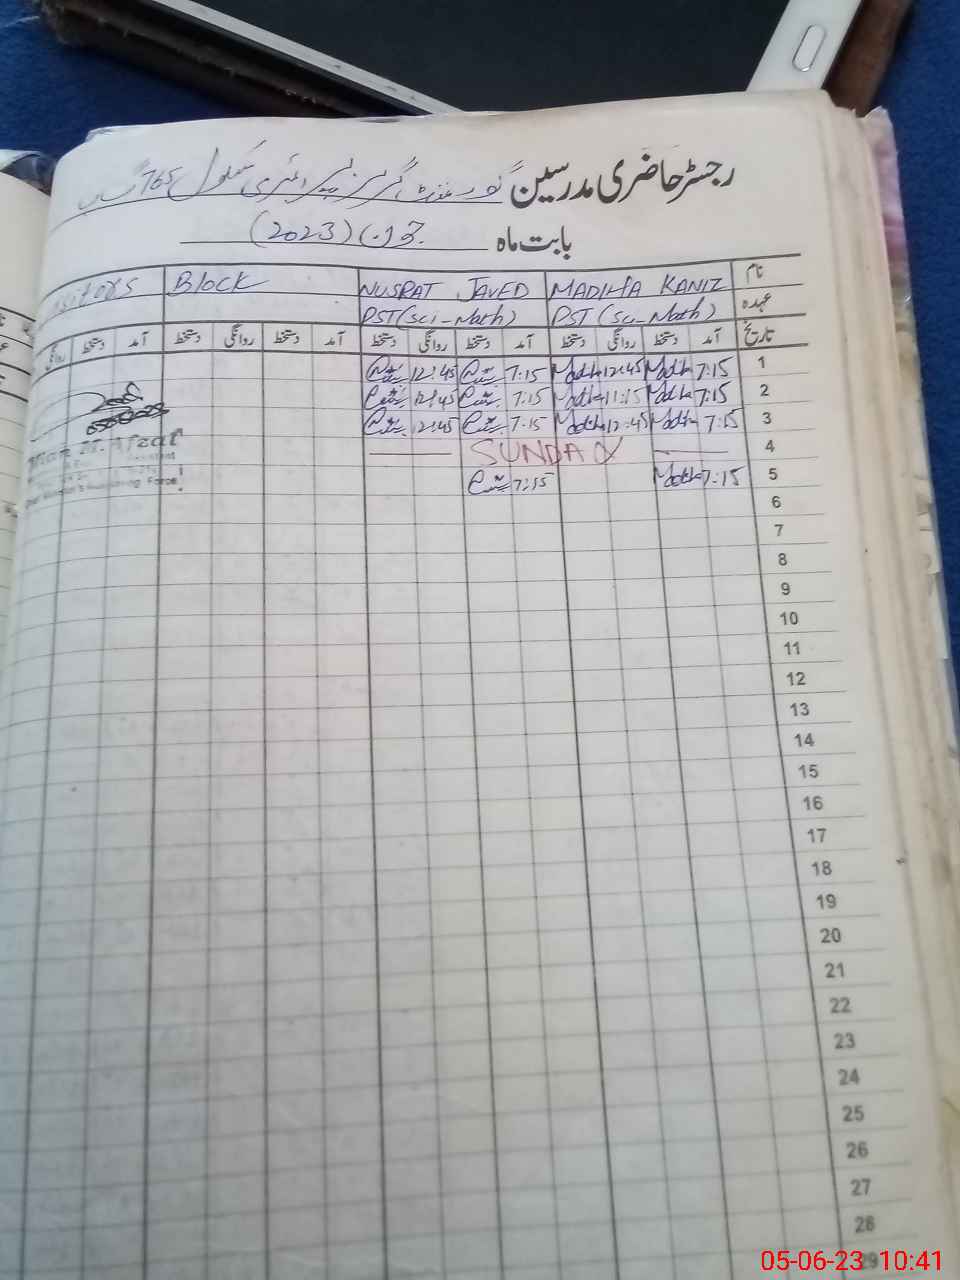 رجسٹر حاضری مدرسین گورنمنٹ گرلز پرائمری سکول 765 گ ب
بابت ماہ جون (2023)
نام MADIHA KANIZ NUSRAT JAVED Block
عہدہ PST (Sci-Math) PST (Sci-Math)
تاریخ آمد دستخط روانگی دستخط آمد دستخط روانگی دستخط آمد دستخط روانگی دستخط آمد دستخط روانگی
1 7:15 12:45 7:15 12:45
2 7:15 11:15 7:15 12:45
3 7:15 12:45 7:15 12:45
4 SUNDAY
5 7:15 7:15
6
7
8
9
10
11
12
13
14
15
16
17
18
19
20
21
22
23
24
25
26
27
28
29
M. Afzal
Force
05-06-23 10:41